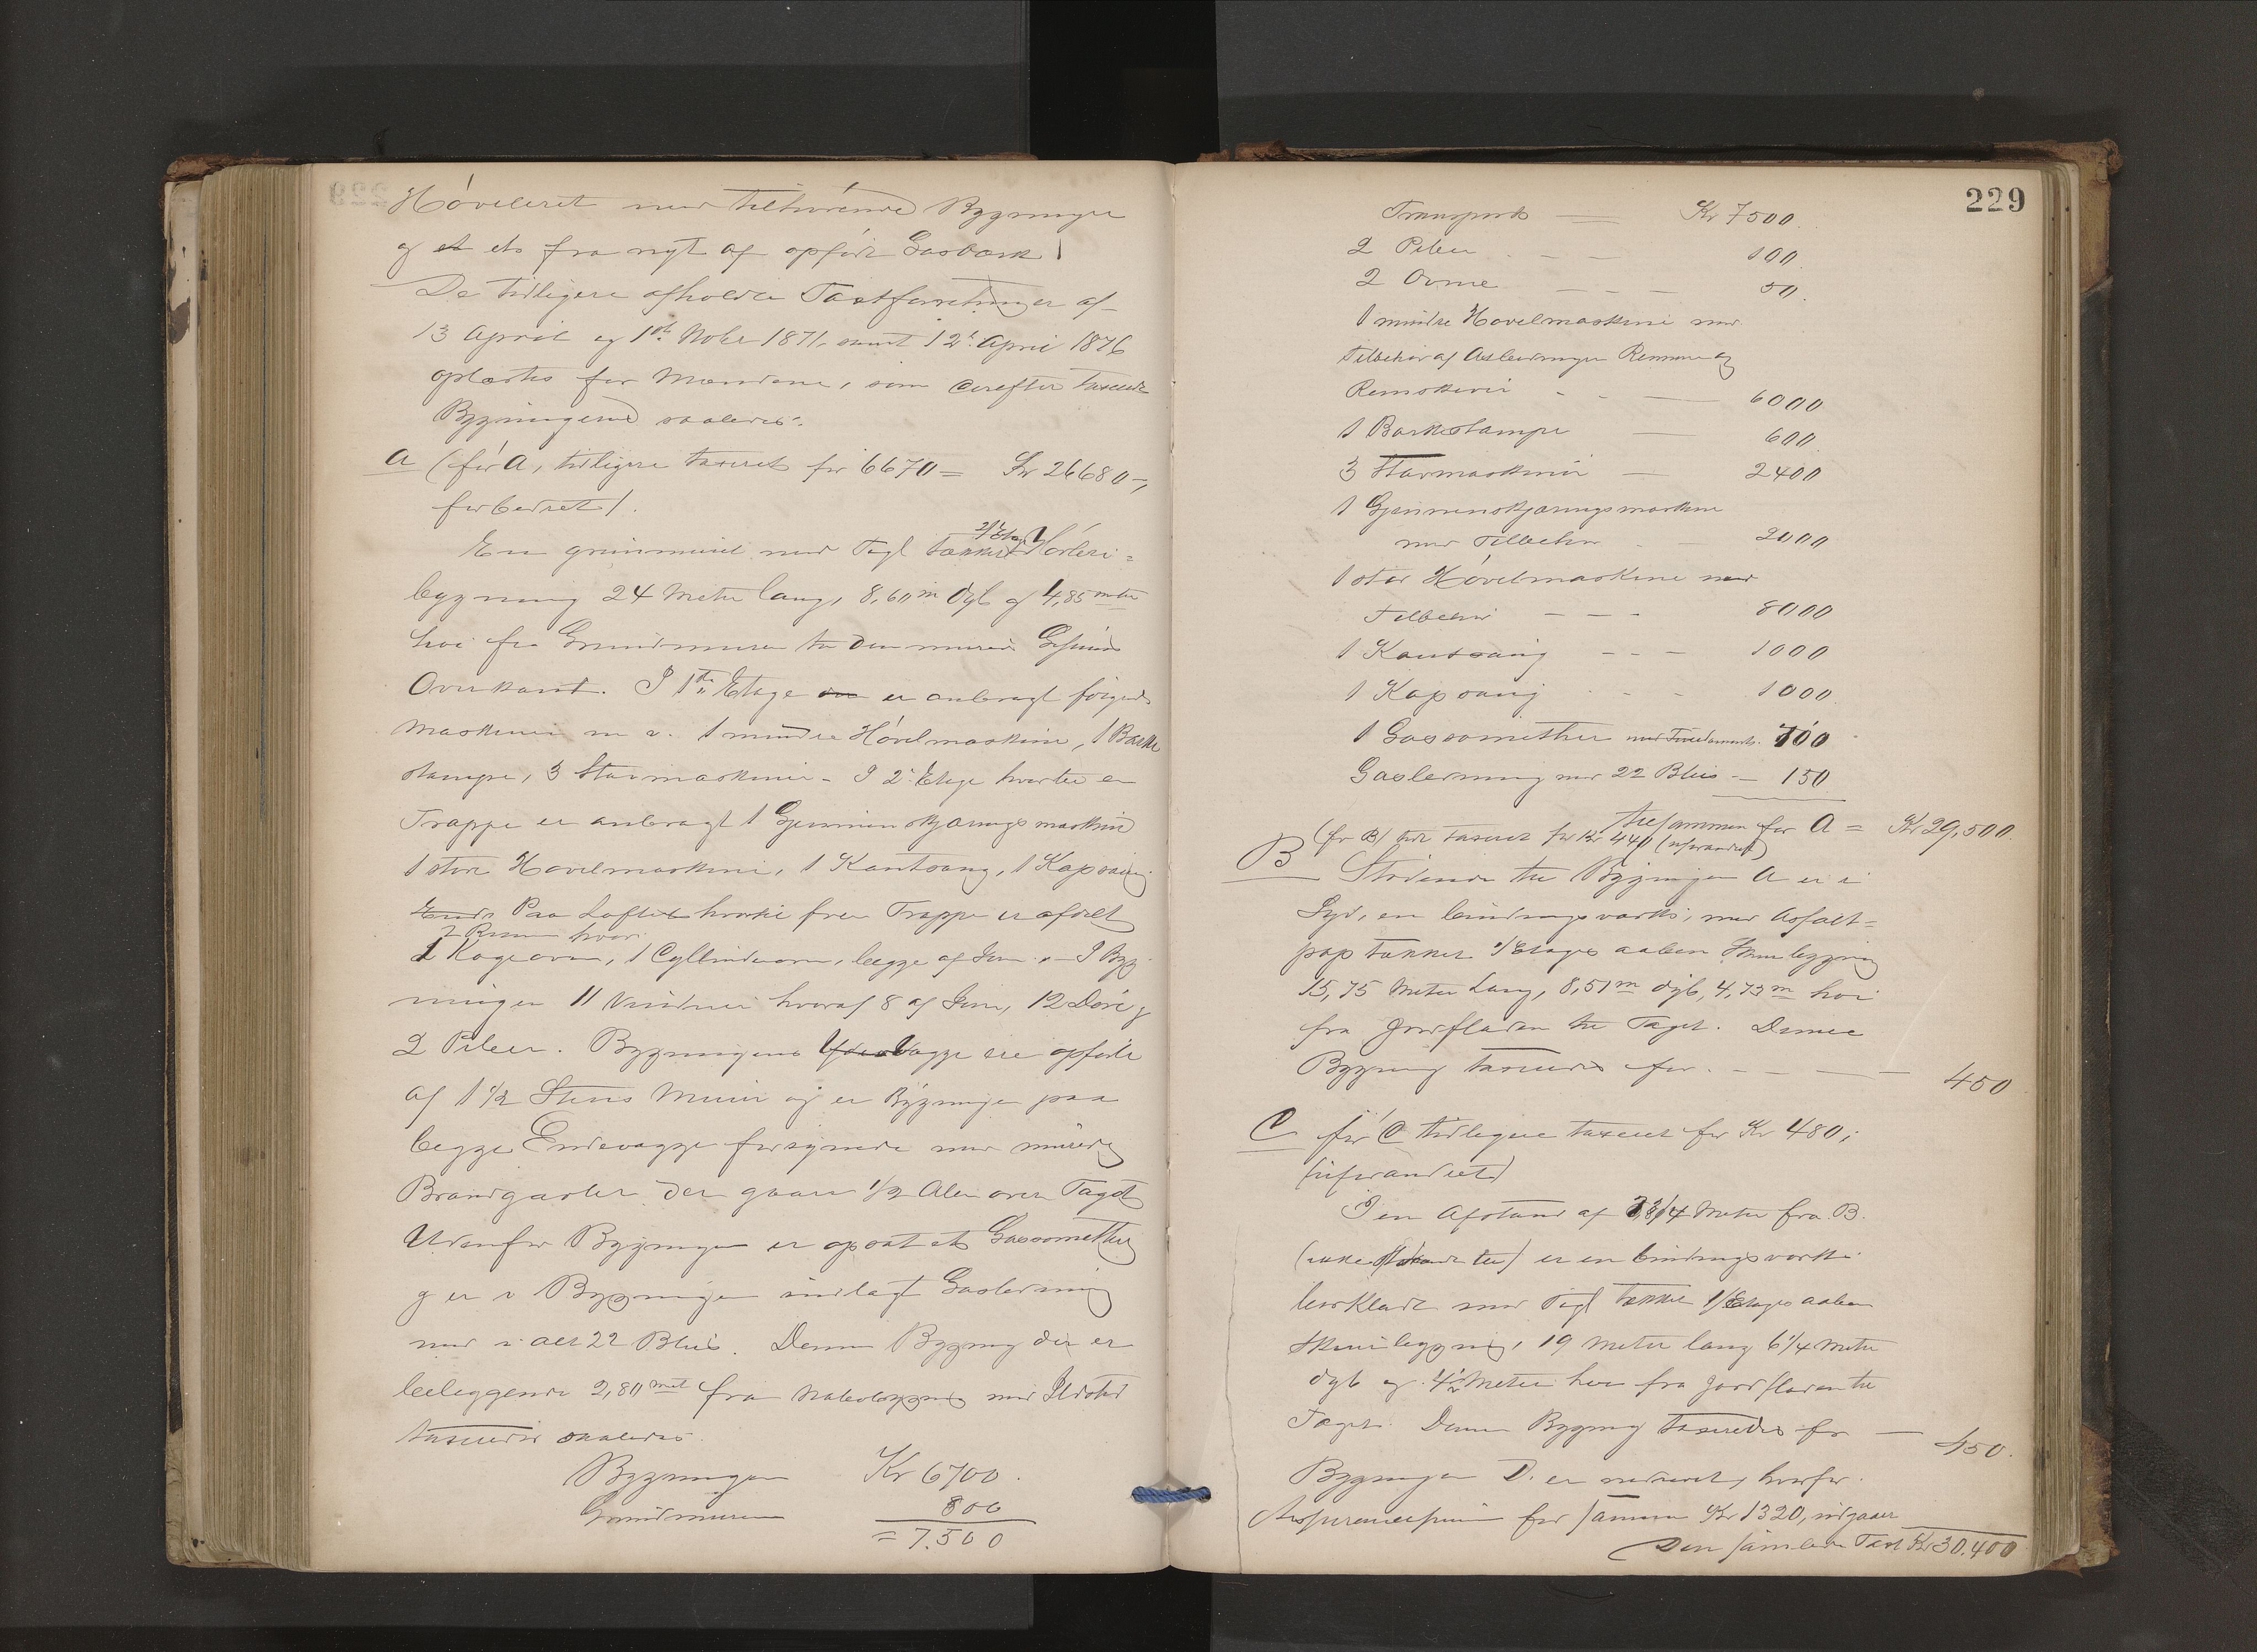 Høvleriet med tilhørende Bygninger
og et fra nyt af opført Gasværk
De tidligere afholdte Taxtforretninger af
13 April og 1ste Nobr 1871, samt 12te April 1876
oplæstes for Mændene, som derefter taxerede
Bygningerne saaledes:
A (før A, tidligere taxeret for 6670 = Kr 26680 -,
forbedret).
En grundmuret med Tegl tækket 2 Etages Høvleri=
bygning 24 Meter lang, 8,60 m dyb og 4,85 meter
høi fra Grundmuren til den murede Gesims
Overkant. I 1ste Etage er anbragt følgende
Maskiner n v. 1 mindre Høvelmaskine, 1 Barke
stampe, 3 Stavmaskiner - I 2. Etage hvortil en
Trappe er anbragt 1 Gjennemskjæringsmaskine
1 stor Høvelmaskine, 1 Kantsaug, 1 Kapsaug
Paa Loftet hvortil fører Trappe er afdelt
2 Rum hvor
1 Kogeovn, 1 Cylinderovn, begge af Jern. - I Byg
ningen 11 Vinduer hvoraf 8 af Jern, 12 Døre og
2 Piber. Bygningens Vægge ere opførte
af 1 1/2 Stens Muur og er Bygningen paa
begge Endevægge forsynede med murede
Brandgavler der gaaer 1/2 Alen over Taget
Udenfor Bygningen er opsat et Gassomether
og er i Bygningen indlagt Gasledning
med i alt 22 Blus. Denne Bygning der er
beliggende 2,80 met fra Nabobygning med Ildsted
taxeredes saaledes.
Bygningen Kr 6700.
Grundmuren 800
= 7.500
229
Transport — Kr 7500.
2 Piber - - - 100.
2 Ovne - - - 50.
1 mindre Høvelmaskine med
Tilbehør af Axledninger Remme og
Remskiver - - — 6000
1 Barkestampe — 600
3 Stavmaskiner — 2400
1 Gjennemskjæringsmaskine
med Tilbehør - - 2000
1 stor Høvelmaskine med
Tilbehør - - - 8000
1 Kantsaug - - - 1000
1 Kapsaug - - - 1000.
1 Gassomether med Fundament. 700
Gasledning med 22 Blus — 150
tilsammen for A = Kr 29,500.
(før B) tidl taxeret for Kr 440 (uforandret)
B Stødende til Bygningen A er i
Syd, en bindingsværks, med Asfalt=
pap tækket 1 Etages aaben Skurbygning
15,75 Meter lang, 8,51 m dyb, 4,73 m høi
fra Jordfladen til Taget. Denne
Bygning taxeredes for. - - — — 450
C før C tidligere taxeret for Kr 480,
(uforandret)
I en Afstand af 3/4 Meter fra B.
(ikke stødende til) er en bindingsværks
bordklædt med Tegl tække 1 Etages aaben
Skurbygning, 19 Meter lang 6 1/4 Meter
dyb og 4 1/2 Meter høi fra Jordfladen til
Taget. Denne Bygning taxeredes for — 450.
Bygningen D. er nedrevet, hvorfor
Assurancesum for samme Kr 1320, udgaaer
Den samlede Taxt Kr 30.400